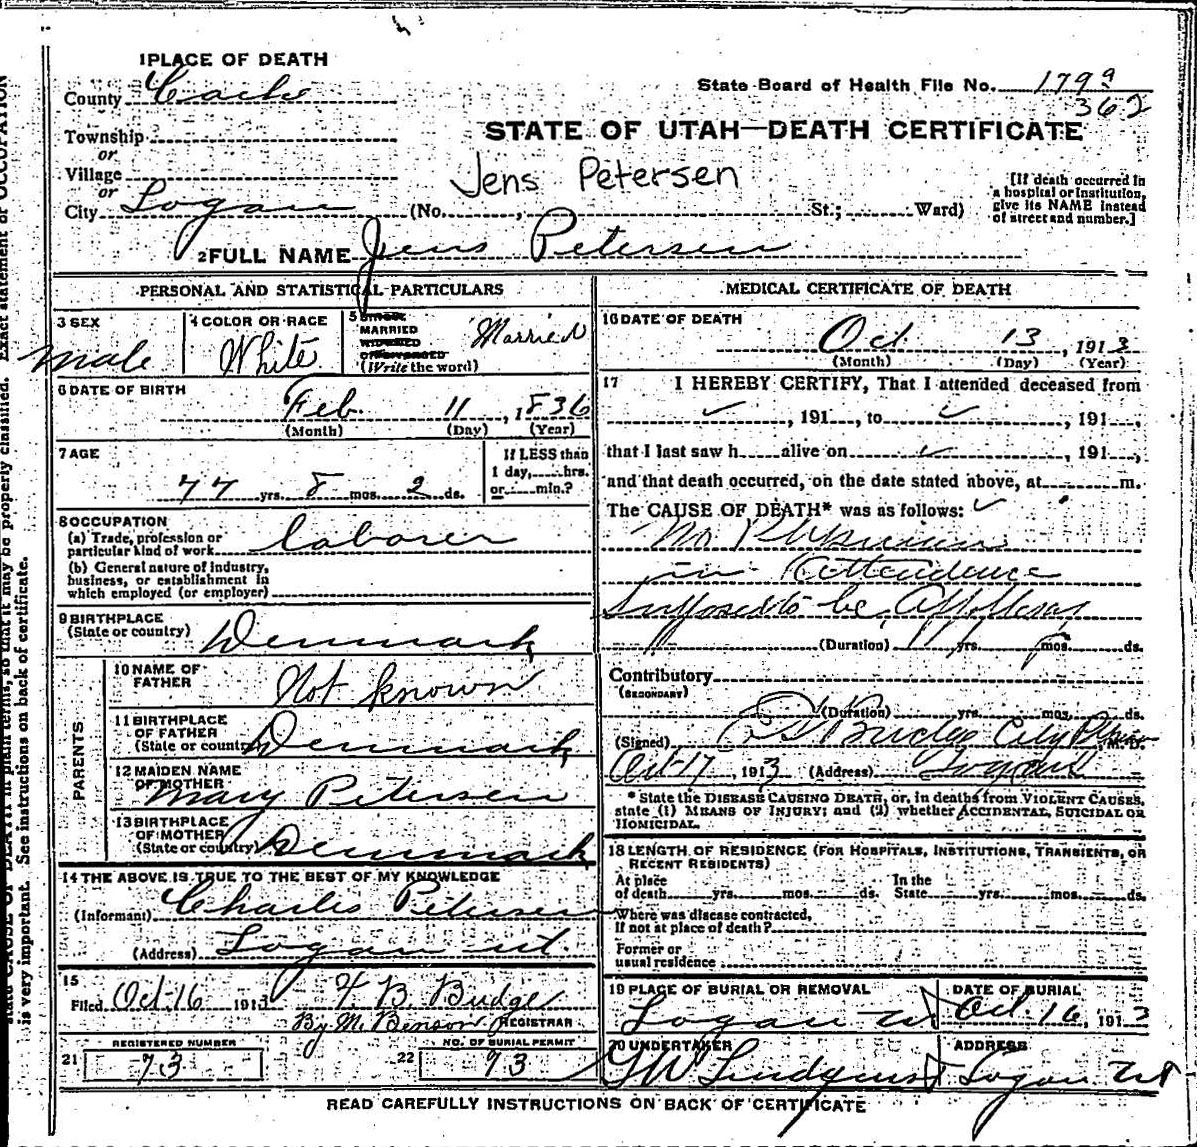 1 PLACE OF DEATH
County Cache
State Board of Health File No. 179a
362
Township
or
Village
or
City Logan
STATE OF UTAH—DEATH CERTIFICATE
Jens Petersen
(No. , St.; Ward)
[If death occurred in
a hospital or institution,
give its NAME instead
of street and number.]
2 FULL NAME Jens Petersen
PERSONAL AND STATISTICAL PARTICULARS
3 SEX
Male
4 COLOR OR RACE
White
5 SINGLE
MARRIED
WIDOWED
OR DIVORCED
(Write the word)
Married
6 DATE OF BIRTH
Feb 11, 1836
(Month) (Day) (Year)
7 AGE
77 yrs. 8 mos. 2 ds.
If LESS than
1 day, hrs.
or min.?
8 OCCUPATION
(a) Trade, profession or
particular kind of work Laborer
(b) General nature of industry,
business, or establishment in
which employed (or employer)
9 BIRTHPLACE
(State or country) Denmark
PARENTS
10 NAME OF
FATHER Not known
11 BIRTHPLACE
OF FATHER
(State or country) Denmark
12 MAIDEN NAME
OF MOTHER
Mary Petersen
13 BIRTHPLACE
OF MOTHER
(State or country) Denmark
14 THE ABOVE IS TRUE TO THE BEST OF MY KNOWLEDGE
(Informant) Charles Petersen
(Address) Logan Ut.
15
Filed Oct 16 1913 F. B. Budge
By M. Benson REGISTRAR
21 REGISTERED NUMBER
73
22 NO. OF BURIAL PERMIT
93
MEDICAL CERTIFICATE OF DEATH
16 DATE OF DEATH
Oct. 13, 1913
(Month) (Day) (Year)
17 I HEREBY CERTIFY, That I attended deceased from
✓, 191 , to ✓, 191 ,
that I last saw h alive on ✓, 191 ,
and that death occurred, on the date stated above, at m.
The CAUSE OF DEATH* was as follows: ✓
No Physician
in Attendence
Supposed to be Apoplexy
(Duration) yrs. mos. ds.
Contributory
(SECONDARY)
(Duration) yrs. mos. ds.
(Signed) Budge City Physician M. D.
Oct 17, 1913 (Address) Logan Ut
* State the DISEASE CAUSING DEATH, or, in deaths from VIOLENT CAUSES,
state (1) MEANS OF INJURY; and (2) whether ACCIDENTAL, SUICIDAL OR
HOMICIDAL.
18 LENGTH OF RESIDENCE (FOR HOSPITALS, INSTITUTIONS, TRANSIENTS, OR
RECENT RESIDENTS)
At place
of death yrs. mos. ds.
In the
State yrs. mos. ds.
Where was disease contracted,
if not at place of death?
Former or
usual residence
19 PLACE OF BURIAL OR REMOVAL
Logan Ut
DATE OF BURIAL
Oct. 16, 1913
20 UNDERTAKER
GW Lindquist
ADDRESS
Logan Ut
READ CAREFULLY INSTRUCTIONS ON BACK OF CERTIFICATE
state CAUSE OF DEATH in plain terms, so that it may be properly classified. Exact statement of OCCUPATION
is very important. See instructions on back of certificate.